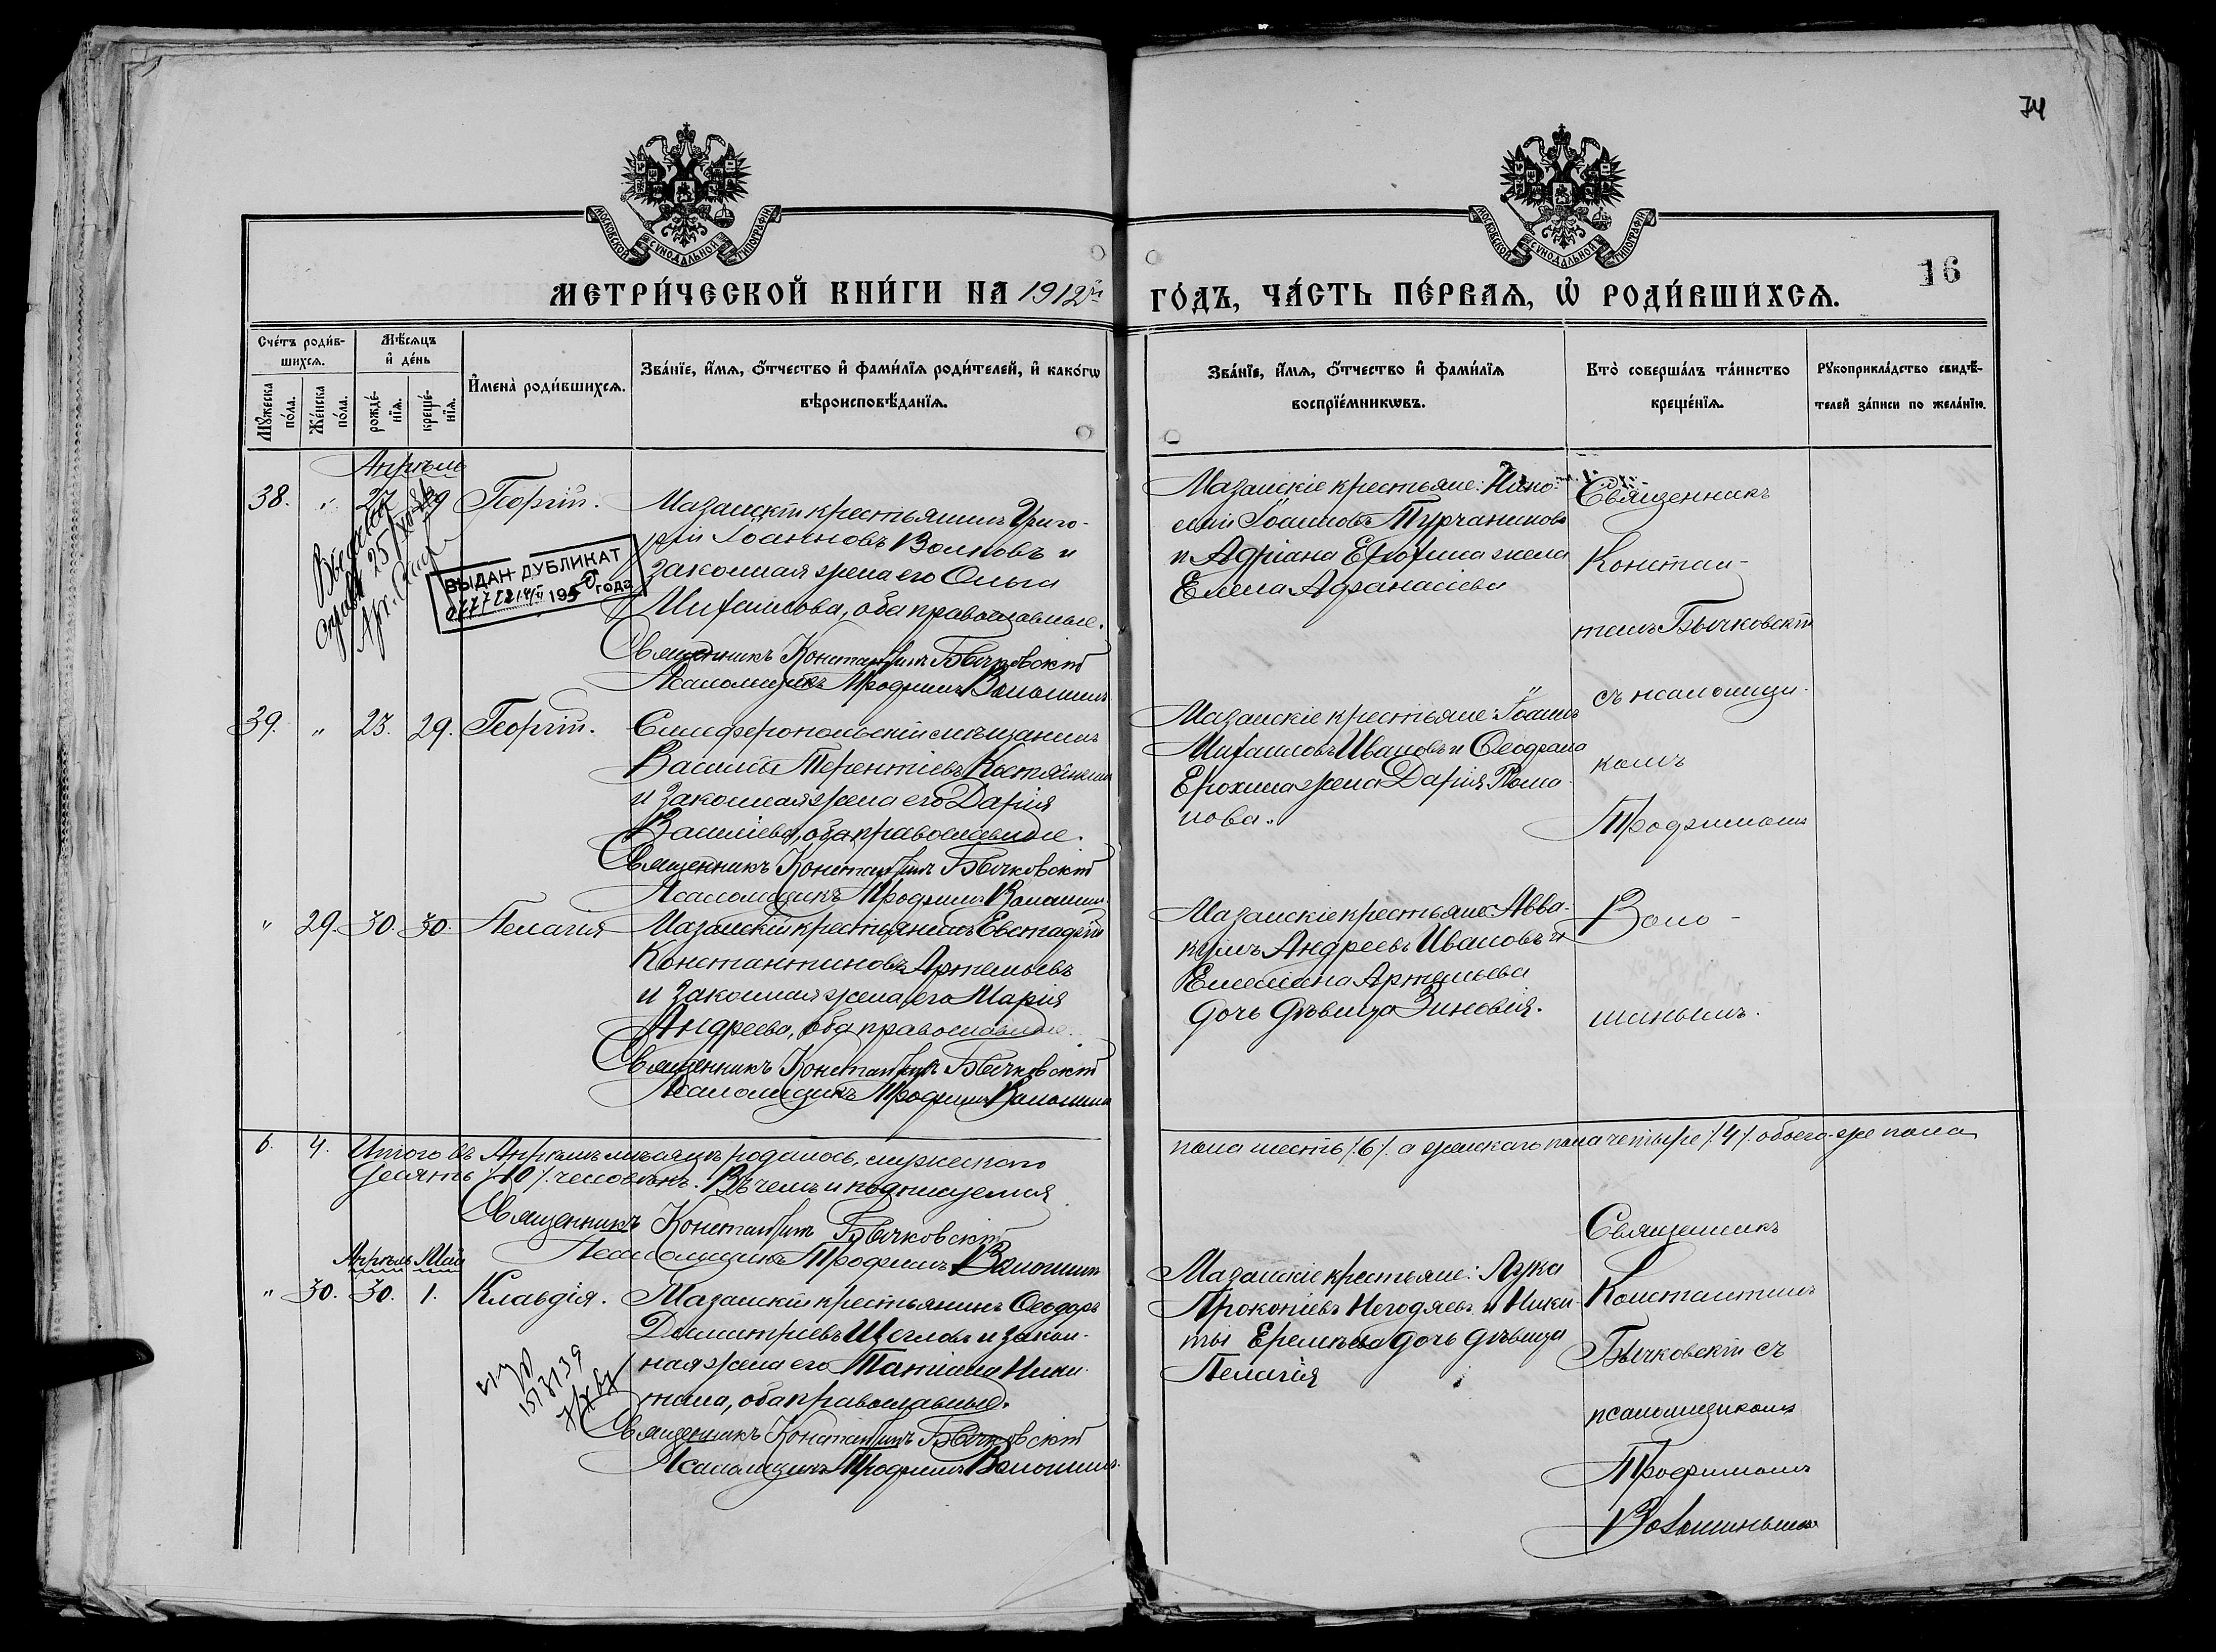 74
МОСКОВСКОЙ СУНОДАЛЬНОЙ ТИПОГРАФІИ
МОСКОВСКОЙ СУНОДАЛЬНОЙ ТИПОГРАФІИ
16
МЕТРИ́ЧЕСКОЙ КНИ́ГИ НА 1912й
ГО́ДЪ, ЧА́СТЬ ПЕ́РВАѦ, Ѡ҆ РОДИ́ВШИХСѦ.
Сче́тъ роди́в-
шихсѧ.
Мѣ́сѧцъ
и҆ де́нь
Мꙋ́жеска по́ла.
Же́нска по́ла.
рожде́-нїѧ.
креще́-нїѧ.
И҆мена̀ роди́вшихсѧ.
Зва́нїе, и҆́мѧ, о҆́тчество и҆ фами́лїѧ роди́телей, и҆ како́гѡ
вѣроисповѣ́данїѧ.
Зва́нїе, и҆́мѧ, о҆́тчество и҆ фами́лїѧ
воспрїе́мникѡвъ.
Кто̀ соверша́лъ та́инство
креще́нїѧ.
Рꙋкоприкла́дство свидѣ́-
телей за́писи по жела́нїю.
Апрѣль
38. " 27 29 Георгій.
Мазанскій крестьянинъ Григо-
рій Іоанновъ Волковъ и
законная жена его Ольга
Михаилова, оба православные.
Священникъ Константинъ Бычковскій
Псаломщикъ Трофимъ Волошинъ
ВЫДАН ДУБЛИКАТ
195 года
Мазанскіе крестьяне:
Іоанновъ Турчаниновъ
и Адріана Ерохина жена
Елена Афанасіева
Священникъ
Констан-
тинъ Бычковскій
съ псаломщи-
комъ
Трофимомъ
Воло-
шинымъ.
39. " 23. 29. Георгій.
Симферопольскій мѣщанинъ
Василій Терентіевъ
и законная жена его Дарія
Василіева, оба православные.
Священникъ Константинъ Бычковскій
Псаломщикъ Трофимъ Волошинъ
Мазанскіе крестьяне: Іоаннъ
Михаиловъ Ивановъ и Ѳеофана
Ерохина жена Дарія Рома-
нова.
" 29. 30. 30. Пелагія
Мазанскій крестьянинъ Евстафій
Константиновъ Артемьевъ
и законная жена его Марія
Андреева, оба православные.
Священникъ Константинъ Бычковскій
Псаломщикъ Трофимъ Волошинъ
Мазанскіе крестьяне: Авва-
кумъ Андреевъ Ивановъ и
Емеліана Артемьева
дочь дѣвица Зиновія.
6. 4. Итого въ Апрѣлѣ мѣсяцѣ родилось, мужескаго
пола шесть /6/. а женскаго пола четыре /4/. обоего-же пола
десять /10/. человѣкъ. Въ чемъ и подписуемся
Священникъ Константинъ Бычковскій
Псаломщикъ Трофимъ Волошинъ
Апрѣль Май
" 30. 30. 1. Клавдія.
Мазанскій крестьянинъ Ѳеодоръ
Димитріевъ Щегловъ и закон-
ная жена его Татіана Ники-
тина, оба православные.
Священникъ Константинъ Бычковскій
Псаломщикъ Трофимъ Волошинъ
Мазанскіе крестьяне: Лука
Прокопіевъ Негодяевъ и Ники-
ты Еремѣева дочь дѣвица
Пелагія
Священникъ
Константинъ
Бычковскій съ
псаломщикомъ
Трофимомъ
Волошинымъ